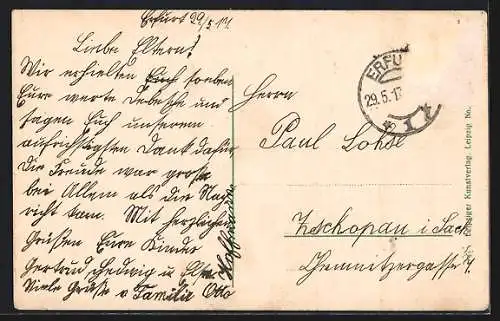 Erfurt 29/5 11.
Liebe Eltern!
Wir erhielten Euch soeben
Eure werte Depesche und
sagen Euch unseren
aufrichtigsten Dank dafür
Die Freude war gross
bei Allem als die Nach
richt kam. Mit herzlichen
Grüßen Eure Kinder
Gertrud, Hedwig u
Viele Grüße v Familie Otto
Hoffmann
ERFU
29.5.1
Herrn
Paul
Zschopau i Sach
Chemnitzergasse 7.
Leipziger Kunstverlag. Leipzig No.